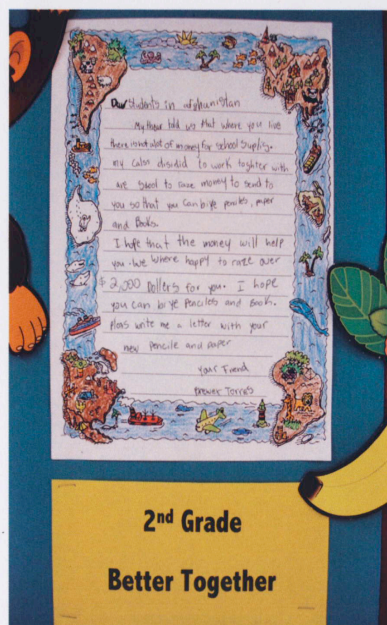 Dear students in afghunistan
My theur told us that where you live
there is not alot of money for school suppligs.
my calss disidid to work toghter with
are shool to raze money to send to
you so that you can biye penciles, paper
and Books.
I hope that the money will help
you. We where happy to raze over
$2,000 Dollers for you. I hope
you can biye penciles and Book.
Pleas write me a letter with your
new pencile and paper
your friend
Brewer Torres
2nd Grade
Better Together